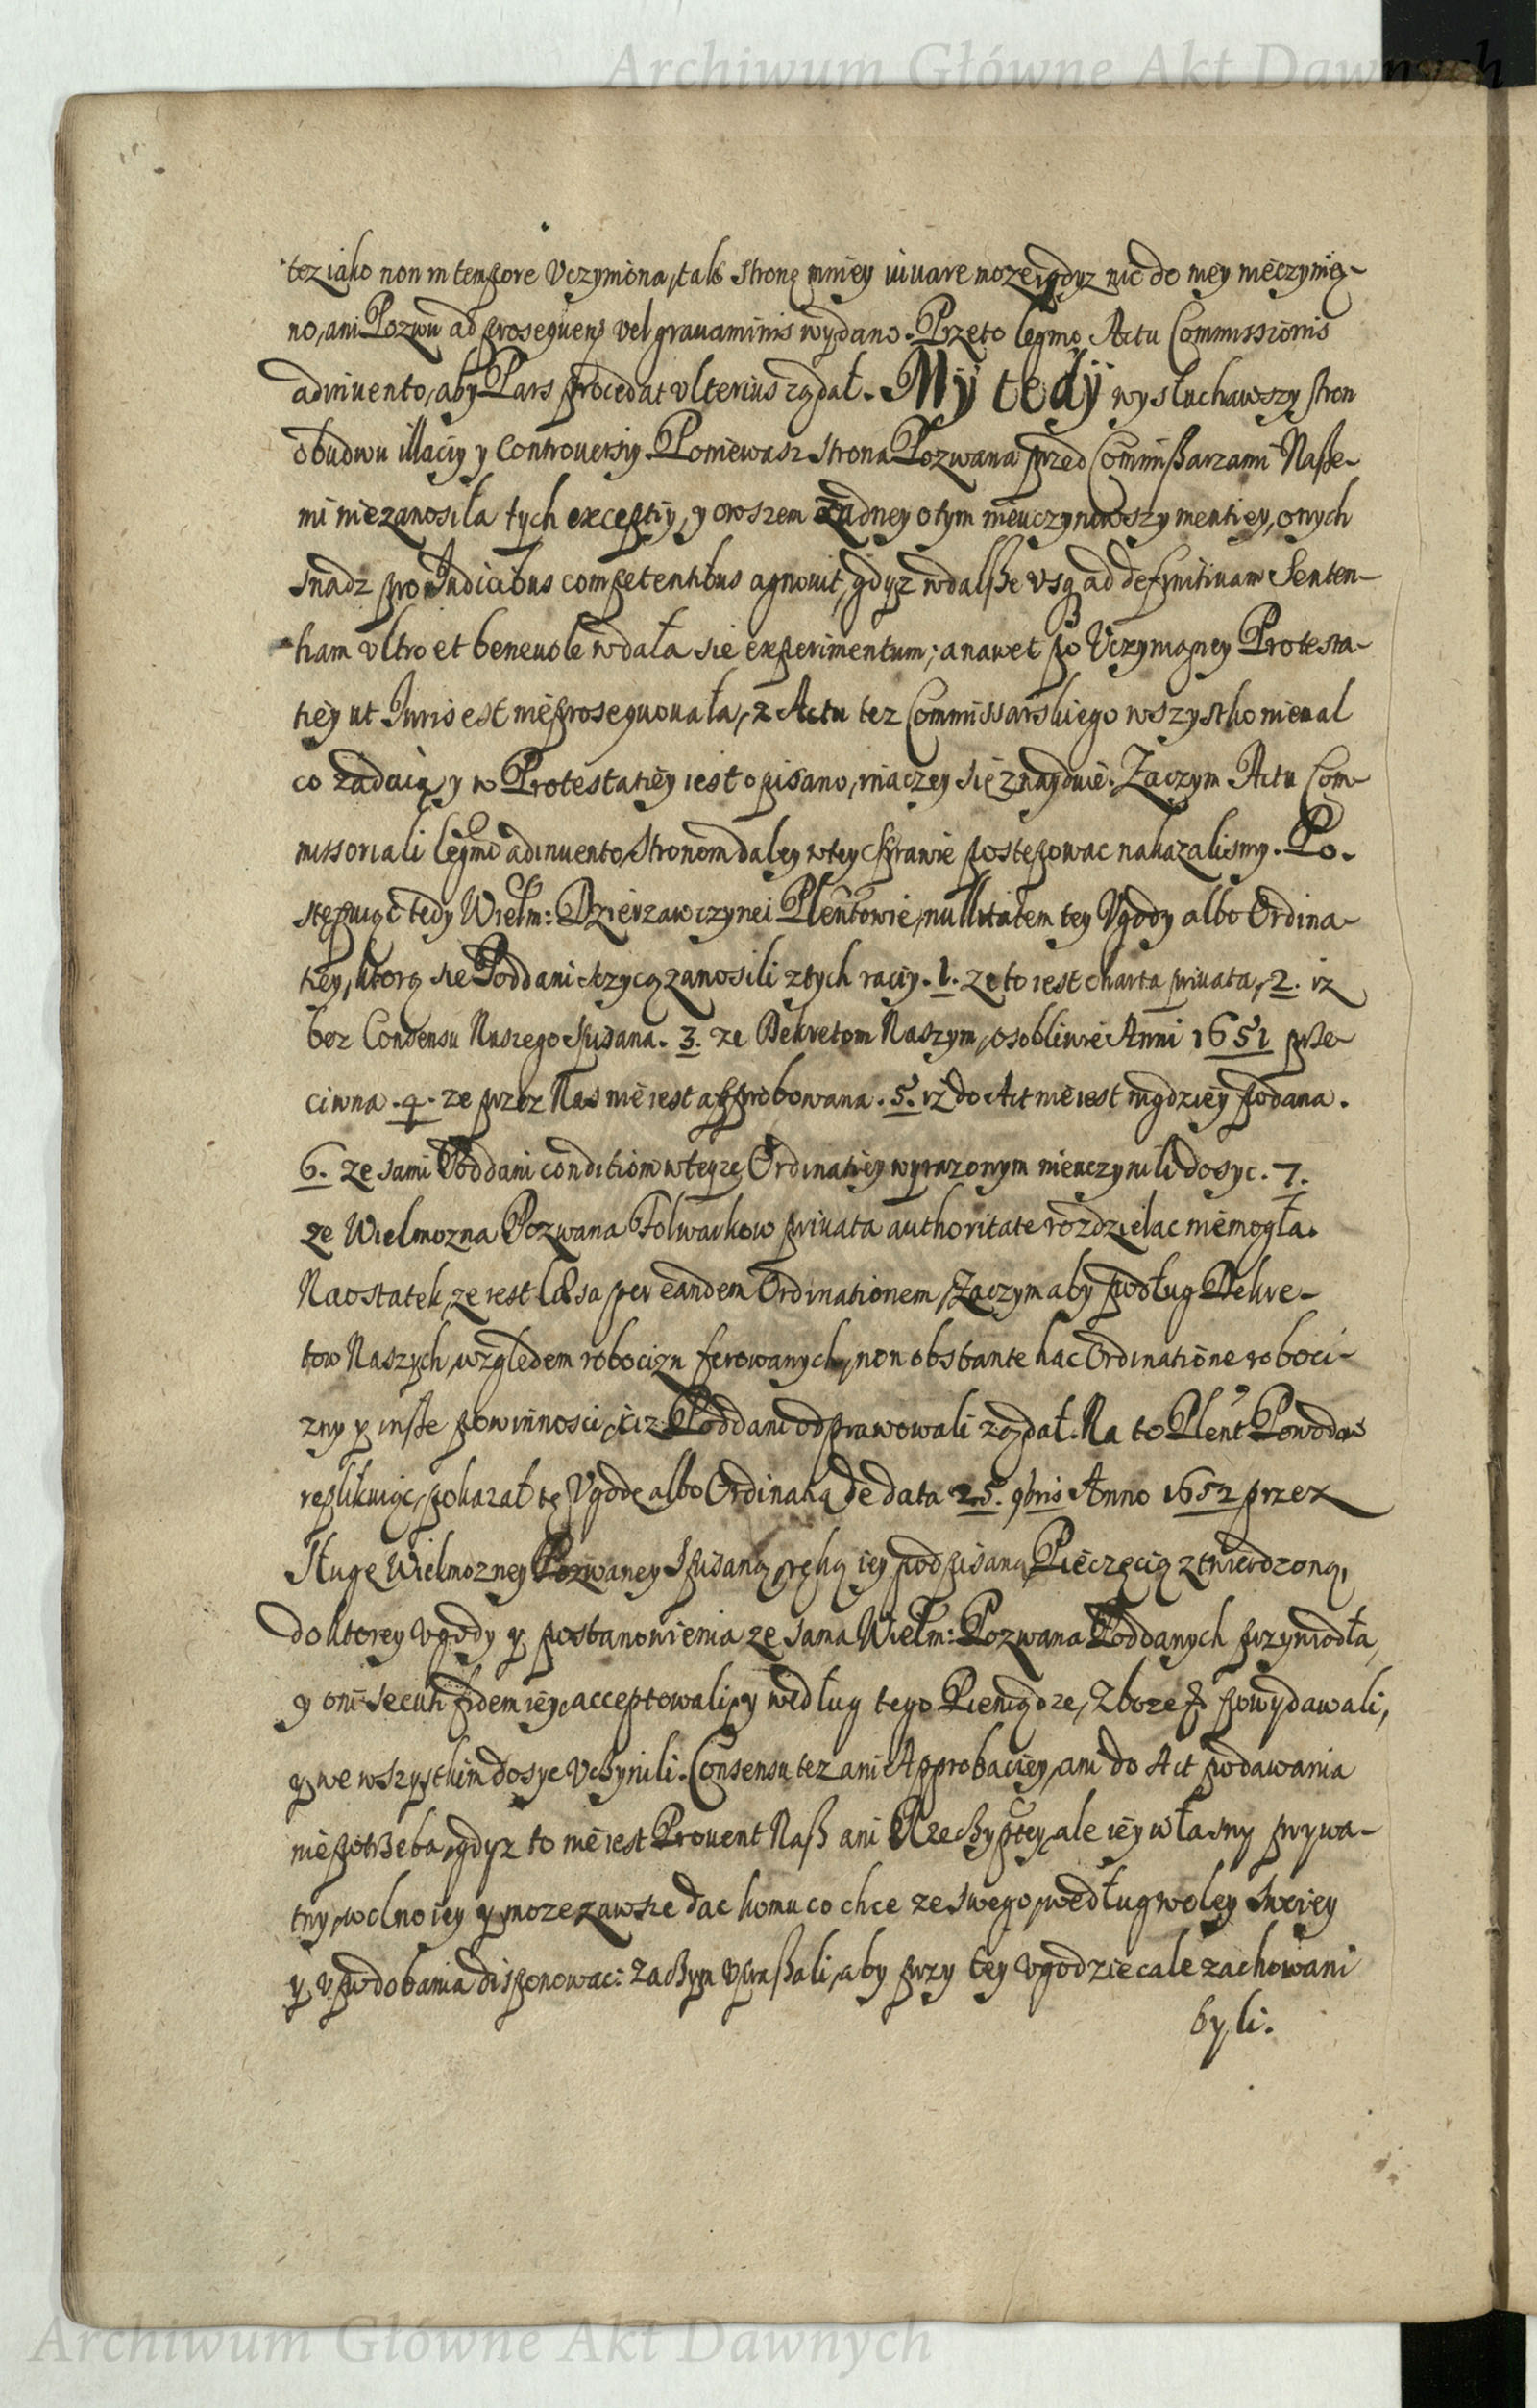 Archiwum Główne Akt Dawnych
też iako non in tempore Vczyniona, tak stronę mniey iuuare może, gdyz nic do niey nieczynię-
no, ani Pozwu ad prosequens vel grauaminis wydano. Przeto legmo Actu Commissionis
adinuento, aby Pars procedat vlterius ządał. My tedy wysłuchawszy stron
obudwu illaciy y Controuersiy Poniewasz strona Pozwana przed Commißarzami Naße-
mi niezanosiła tych exceptiy, y owszem żadney o tym nieuczyniwszy mentiey, onych
snadz pro Iudicibus competentibus agnouit, gdyz w dalße vsq ad definitiuam Senten-
tiam vltro et beneuole wdała sie experimentum; a nawet po Vczynioney Protesta-
tiey ut Iuris est nieprosequowała, z Actu tez Commissarskiego wszystko nieral
co zadaią y w Protestatiey iest opisano, inaczey się znayduie. Zaczym Actu Com-
missoriali legmo adinuento, stronom daley w tey sprawie postępowac nakazalismy. Po-
stępuiąc tedy Wielm: Dzierzawczynei Plentowie, nullitatem tey Vgody albo Ordina-
tiey, ktorą sie Poddani szczycą zanosili z tych raciy. 1. ze to iest charta priuata, 2. iz
bez Consensu Naszego spisana. 3. ze Dekretom Naszym, osobliwie Anni 1651 prze-
ciwna. 4. ze przez Nas nie iest approbowana. 5. iż do Act nie iest nigdziey podana.
6. ze sami Poddani conditiom w teyze Ordinatiey wyrazonym nieuczynili dosyc. 7.
ze Wielmozna Pozwana Folwarkow priuata authoritate rozdzielac niemogła.
Naostatek, ze iest læsa per eandem Ordinationem, Zaczym aby podług Dekre-
tow Naszych, względem robocizn ferowanych, non obstante hac Ordinatione roboci-
zny y inße powinnosci, ciz Poddani odprawowali ządał. Na to Plent Powodow
replikuiąc, pokazał tę Vgodę albo Ordinatią de data 25. 9bris Anno 1652 przez
Sługę Wielmozney Pozwaney spisaną, ręką iey podpisaną, Pieczęcią ztwierdzoną,
do ktorey vgody y postanowienia ze sama Wielm: Pozwana Poddanych przywiodła,
y oni secuti fidem iey, acceptowali, y według tego Pieniądze, Zboze powydawali,
y we wszystkim dosyc Vczynili. Consensu tez ani Approbaciey, ani do Act podawania
niepotrzeba, gdyz to nie iest Prouent Naß ani Rzeczyptey, ale iey własny prywa-
tny, wolno iey y moze zawsze dac komu co chce ze swego, według woley swoiey
y vpodobania disponowac: zaczym vpraßali, aby przy tey vgodzie cale zachowani
byli.
Archiwum Główne Akt Dawnych